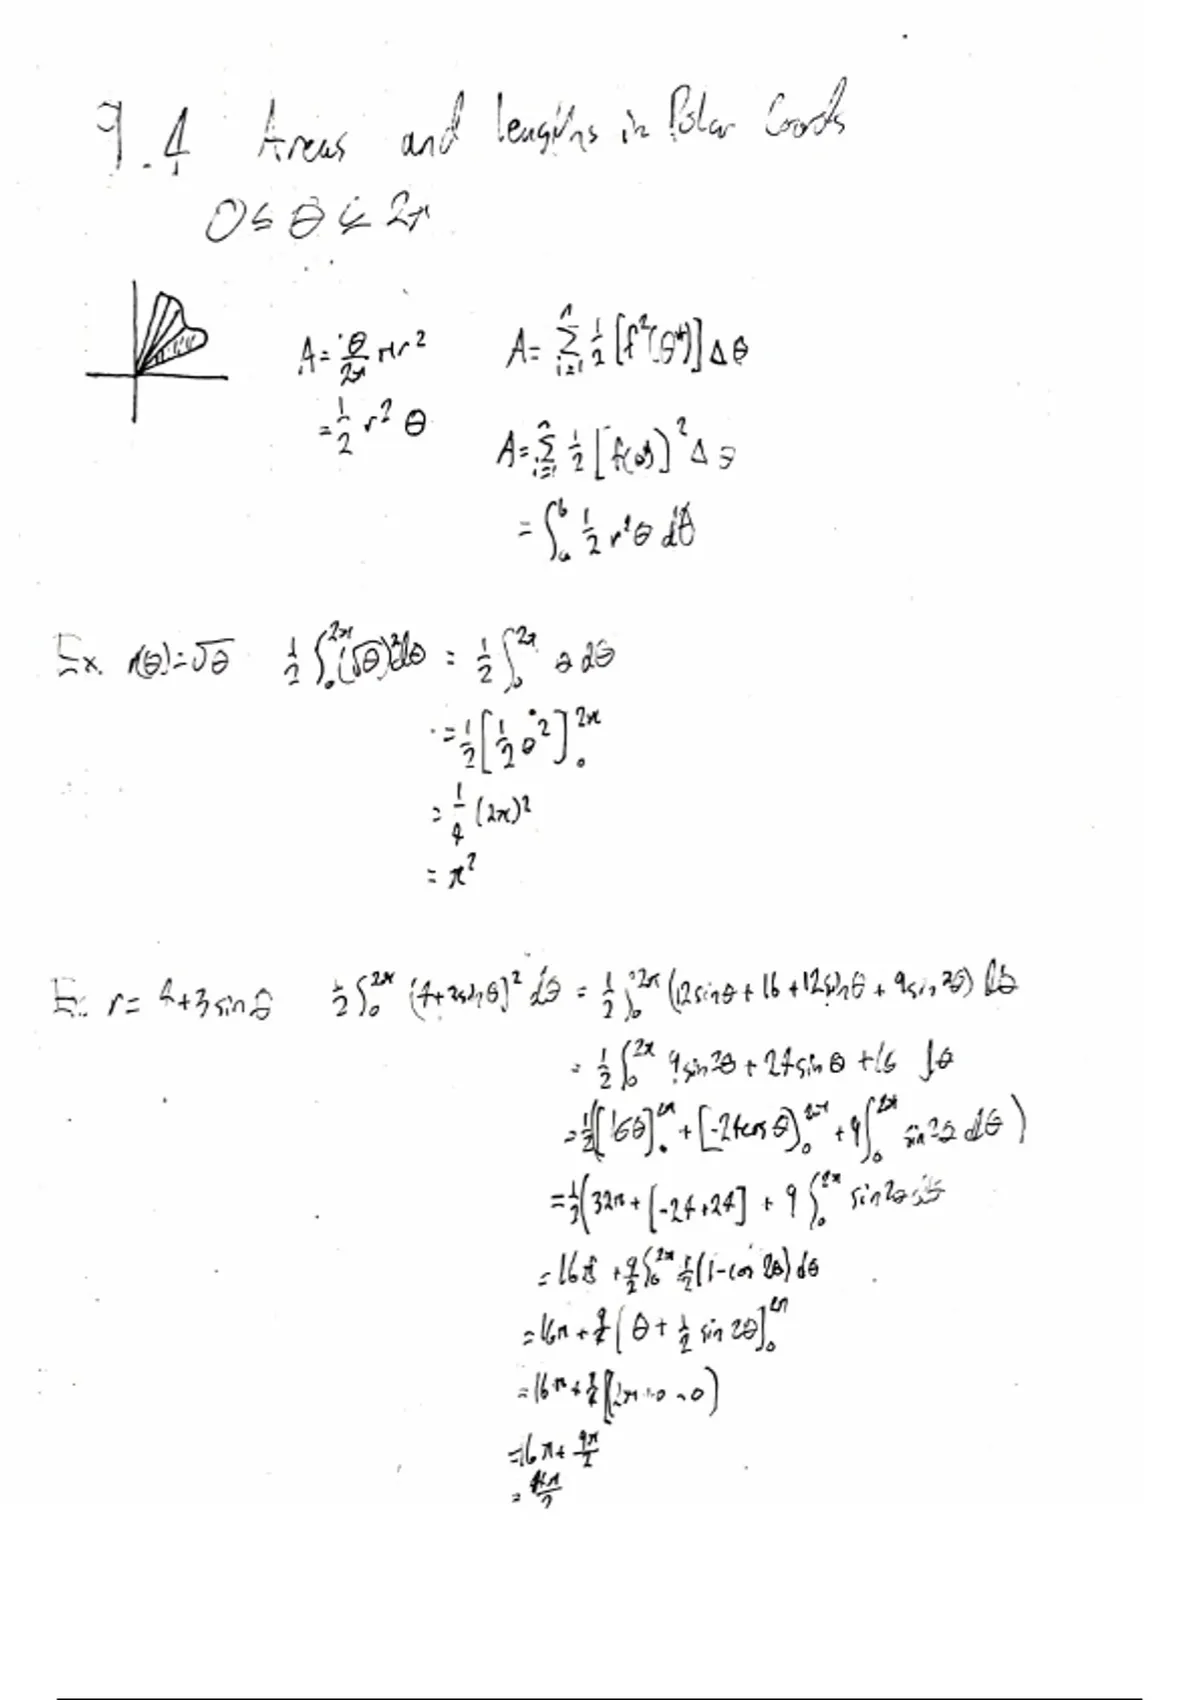 9.4 Areas and lengths in Polar Coords
0 ≤ θ ≤ 2π
A = θ/2π πr²
= 1/2 r² θ
A = Σ_{i=1}^{n} 1/2 [f²(θ*)] Δθ
A = Σ_{i=1}^{n} 1/2 [f(θ*)]² Δθ
= ∫_a^b 1/2 r²θ dθ
Ex. r(θ) = √θ 1/2 ∫_0^{2π} (√θ)² dθ = 1/2 ∫_0^{2π} θ dθ
= 1/2 [1/2 θ²]_0^{2π}
= 1/4 (2π)²
= π²
Ex. r = 4+3sinθ 1/2 ∫_0^{2π} (4+3sinθ)² dθ = 1/2 ∫_0^{2π} (12sinθ + 16 + 12sinθ + 9sin²θ) dθ
= 1/2 ∫_0^{2π} 9sin²θ + 24sinθ + 16 dθ
= 1/2 ([16θ]_0^{2π} + [-24cosθ]_0^{2π} + 9 ∫_0^{2π} sin²θ dθ)
= 1/2 (32π + [-24+24] + 9 ∫_0^{2π} sin²θ dθ
= 16π + 9/2 ∫_0^{2π} 1/2 (1-cos 2θ) dθ
= 16π + 9/4 [θ + 1/2 sin 2θ]_0^{2π}
= 16π + 9/4 [(2π+0-0)
= 16π + 9π/2
= 41π/2